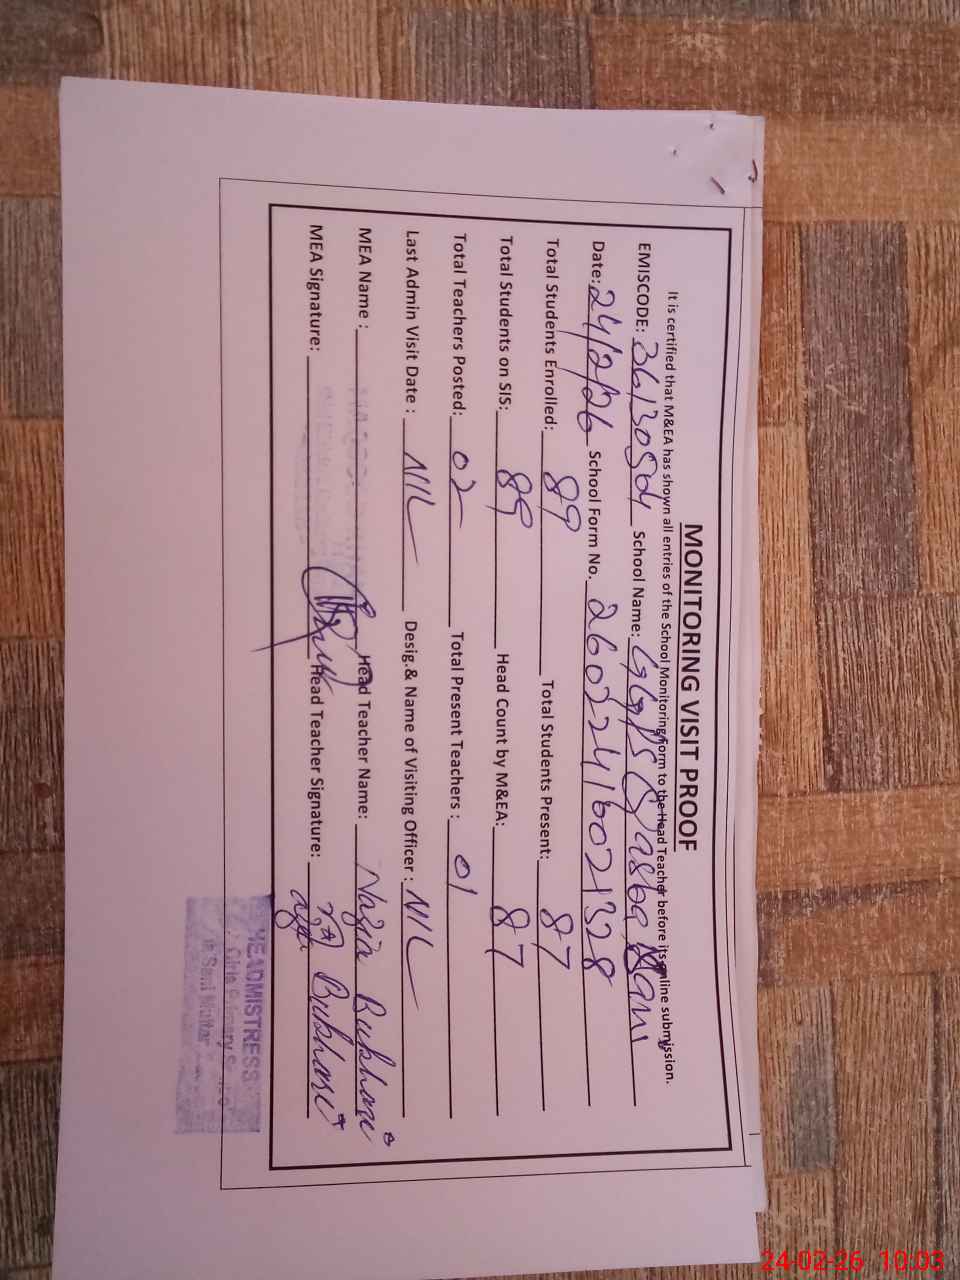 MONITORING VISIT PROOF
It is certified that M&EA has shown all entries of the School Monitoring Form to the Head Teacher before its online submission.
EMISCODE: School Name: GGPS
Date: 24/2/26 School Form No. 26022416021328
Total Students Enrolled: 89 Total Students Present: 87
Total Students on SIS: 89 Head Count by M&EA: 87
Total Teachers Posted: 02 Total Present Teachers : 01
Last Admin Visit Date : NIL Desig.& Name of Visiting Officer : NIL
MEA Name : Head Teacher Name: Nazia Bukhari
MEA Signature: Head Teacher Signature: Bukhari
HEADMISTRESS
Girls Primary
24-02-26 10:03